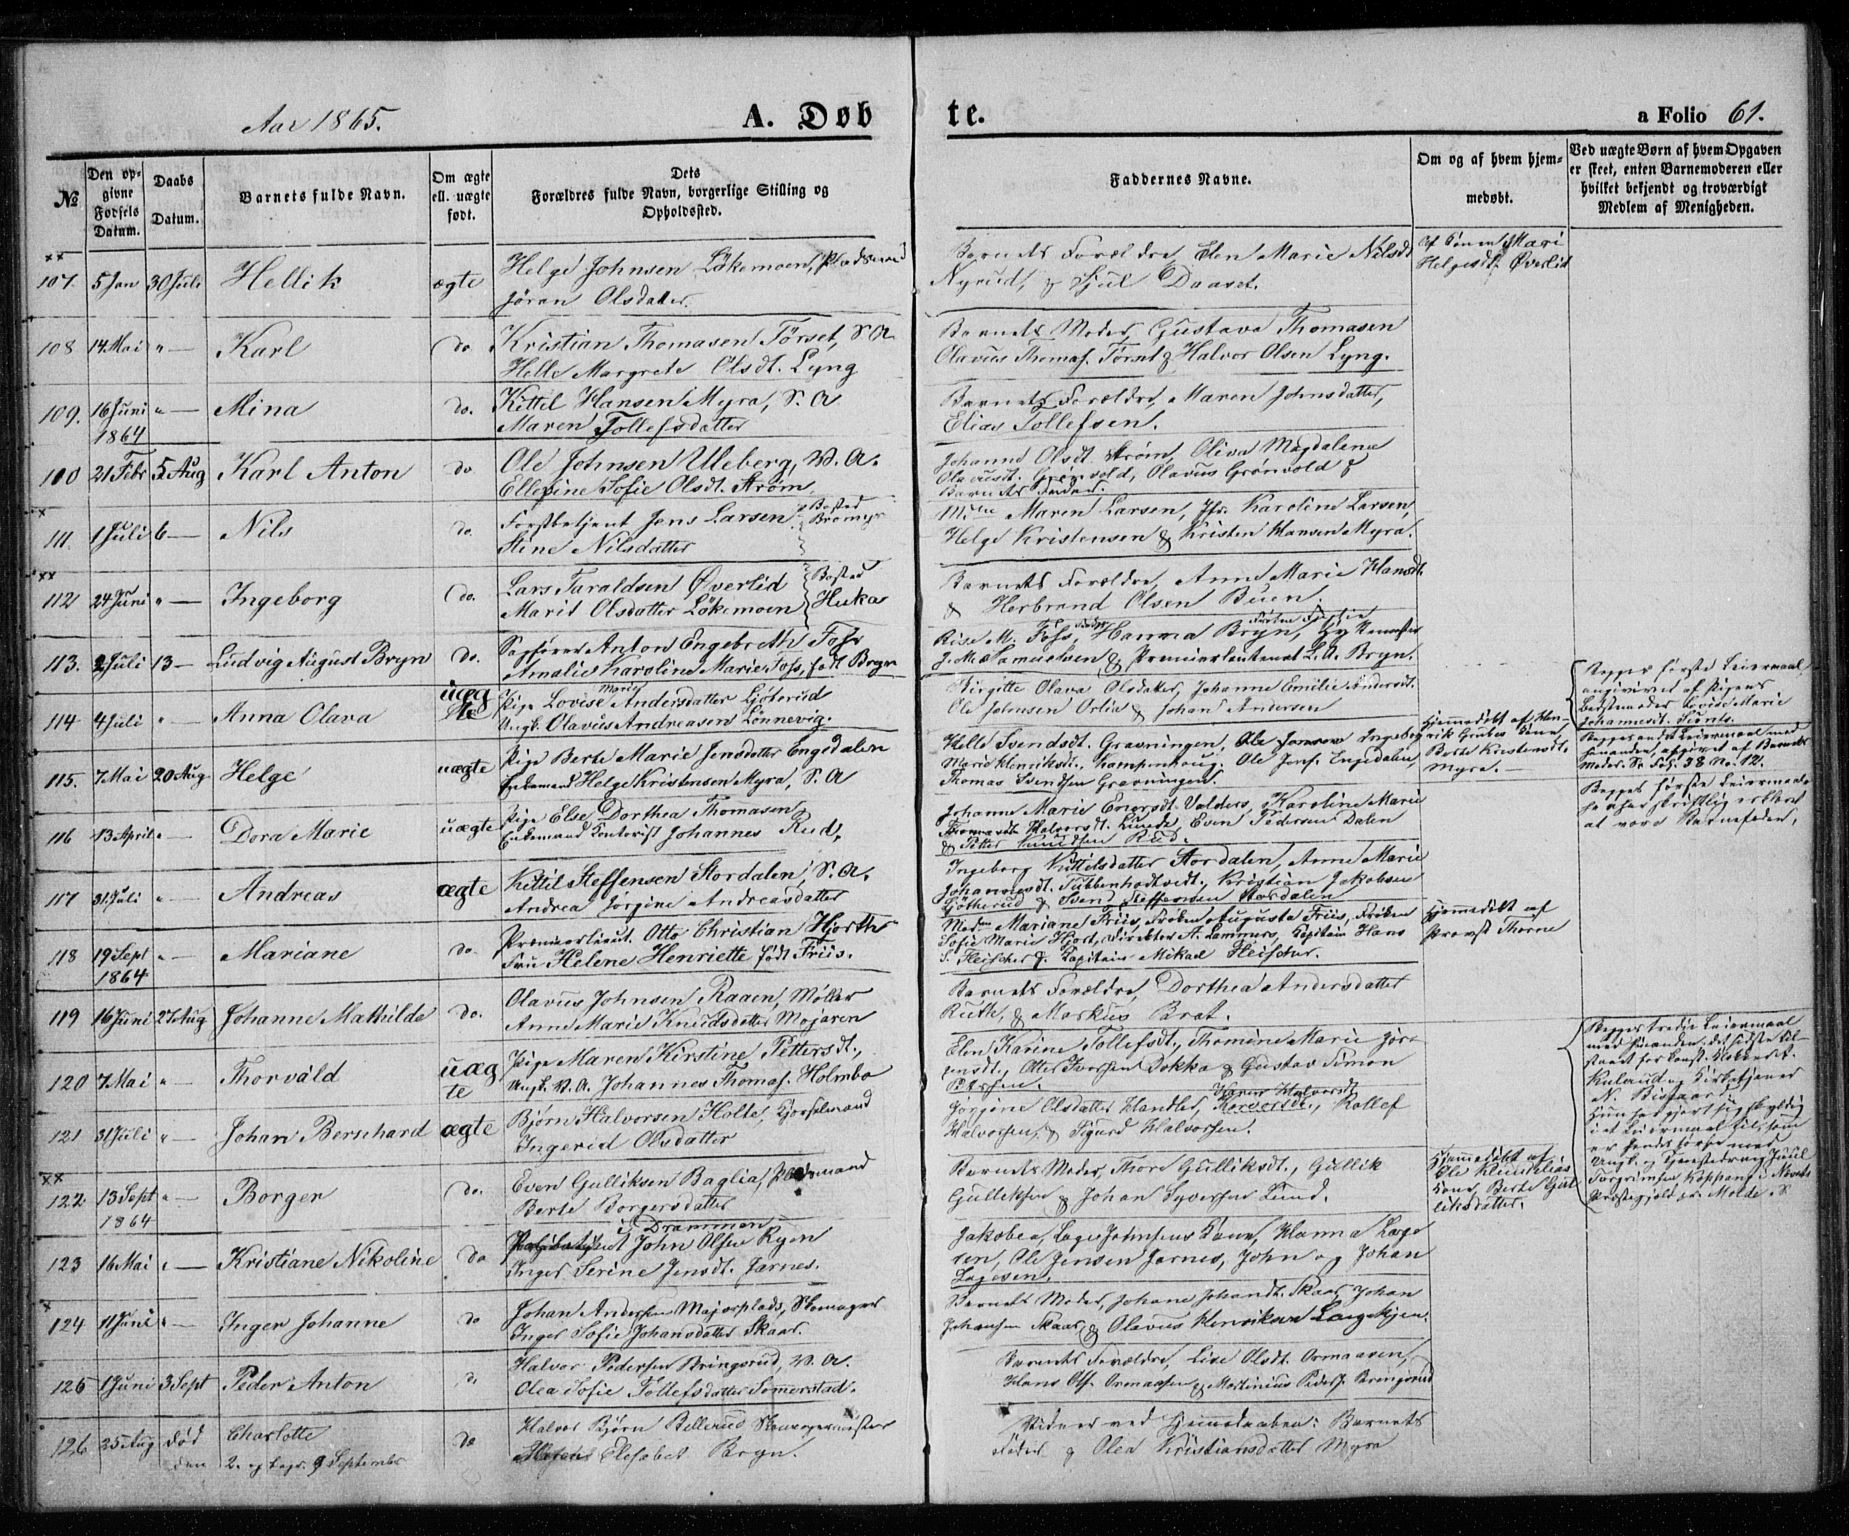 Aar 1865.
A. Døbte.
a Folio 61.
№
Den opgivne Fødsels Datum.
Daabs Datum.
Barnets fulde Navn.
Om ægte ell. uægte født.
Dets Forældres fulde Navn, borgerlige Stilling og Opholdssted.
Faddernes Navne.
Om og af hvem hjemmedøbt.
Ved uægte Børn af hvem Opgaven er skeet, enten Barnemoderen eller hvilket bekjendt og troværdigt Medlem af Menigheden.
xx
107. 5 Jan 30 Juli Hellik ægte Helge Johnsen Løkemoen, Pladsmand
Jøran Olsdatter.
Barnets Forældre, Elen Marie Nilsdt
Nyrud, & Hjul Daaset.
Af Konen Mari
Helgesdt. Øverlid
108 14 Mai " — Karl do Kristian Thomasen Tørset, S. A
Helle Margrete Olsdt. Lyng
Barnets Moder, Gustava Thomasen
Olavus Thomas. Tørset & Halvor Olsen Lyng.
109. 16 Juni " — Mina do. Kittil Hansen Myra, S. A
1864
Maren Tollefsdatter
Barnets Forældre, Maren Johnsdatter,
Elias Tollefsen.
110 21 Febr 5 Aug Karl Anton do Ole Johnsen Uleberg, V. A.
Ellevine Sofie Olsdt. Strøm.
Johanne Olsdt. Strøm, Oliva Magdalena
Olavusdt. Grønvold, Olavus Grønvold &
Barnets Fader.
x
111. 1 Juli 6 — Nils do Forstbetjent Jens Larsen Bosted
Stine Nilsdatter Bromyr
Maren Larsen, Jfr. Karoline Larsen,
Helge Kristensen & Kristen Hansen Myra.
xx
112 24 Juni " — Ingeborg do. Lars Taraldsen Øverlid Bosted
Marit Olsdatter Løkemoen Huka
Barnets Forældre, Anne Marie Hansdt.
& Herbrand Olsen Buen.
113. 2 Juli 13 — Ludvig August Bryn do. Sagfører Anton Engebreth Foss
Amalie Karoline Marie Foss, født Bryn
Rise M. Foss, Hanna Bryn, Hyttemester
J. M. Samuelsen & Premierlieutenant L. A. Bryn.
114 4 Juli " — Anna Olava uægte Pige Lovise Marie Andersdatter Gjøterud
Ungk. Olavus Andreasen Lønnevig.
Birgitte Olava Olsdatter, Johanne Emilie Andersdt.
Ole Johnsen Orlia & Johan Andersen
Begges første Leiermaal,
angivet af Pigens
Bedstemoder Lovise Marie
Johannesdt.
115. 7 Mai 20 Aug Helge uægte Pige Berte Marie Jensdatter Engedalen
Enkemand Helge Kristensen Myra, S. A
Helle Svendsdt. Gravningen, Ole Jonsen Ingeberg
Marie Henriksdt. Kampenhaug. Ole Jens. Engedalen,
Thomas Svendsen Gravningen.
Hjemmedøbt af Henrik Grubes Kone,
Berte Kristensdt.
Myra.
Begges andet Leiermaal med
hinanden, opgivet af Barnets
Moder. Se Fol. 38 No. 12.
116 13 April " — Dora Marie uægte Pige Else Dorthea Thomasen
Enkemand Kontorist Johannes Rud,
Johanne Marie Enersdt. Valders, Karoline Marie
Halvorsdt. Lunde, Even Pedersen Dalen
& Petter Knudsen Rud.
Begges første Leiermaal
han har skriftlig erkjendt
at være Barnefaderen.
117 31 Juli " — Andreas ægte Kittil Steffensen Stordalen, S. A.
Andrea Jorgine Andreasdatter
Ingeborg Kittilsdatter Stordalen, Anne Marie
Johannesdt. Tubbenhodtvedt, Kristian Jakobsen
Gjøtherud & Svend Steffensen Stordalen
118 19 Sept " — Mariane do. Premierlieut. Otto Christian Hjorth
1864
Fru Helene Henriette født Friis.
Mariane Friis, Frøken Augusta Friis, Frøken
Sofie Marie Hjort, Direktør A. Lammers, Kapitain Hans
S. Fleischer & Kapitain Mikael Fleischer.
Hjemmedøbt af
Provst Thorne
119 16 Juni 27 Aug Johanne Mathilde do. Olavus Johnsen Raaen, Møller
Anne Marie Knudsdatter Mojaren
Barnets Forældre, Dorthea Andersdatter
Ruth, & Markus Brat.
120 7 Mai " — Thorvald uægte Pige Maren Kirstine Pettersdt.,
Ungk. V. A. Johannes Thomas. Holmbo
Elen Karine Tollefsdt., Thomine Marie Jørgensdt., Otter Iversen Dokka & Gustav Simon
Petersen.
Begges tredie Leiermaal
med hinanden.
N. Bisgaard
121 31 Juli " — Johan Bernhard ægte Bjørn Halvorsen Holte, Kjørselmand
Ingerid Olsdatter
Gørgine Olsdatter Handler, Karen Halvorsdt., Rollef
Halvorsen, & Sigurd Halvorsen.
xx
122. 13 Sept " — Borger do. Even Gulliksen Baglia, Pladsmand
1864
Berte Borgersdatter
Barnets Moder, Thore Gulliksdt., Gullik
Gulliksen & Johan Syversen Lund.
Hjemmedøbt af
Ole Knudslias
Kone, Berte Gulliksdatter.
123 16 Mai " — Kristiane Nikoline do i Drammen
John Olsen Ryen
Inger Serine Jensdt. Jarnes.
Jakobea, Lage Johnsens Kone, Hanna Lagesen, Ole Jensen Jarnes, John og Johan
Lagesen.
x
124 11 Juni " — Inger Johanne do Johan Andersen Majorplads, Skomager
Inger Sofie Johansdatter Skaar.
Barnets Moder, Johane Johansdt. Skaar, Johan
Johansen Skaar, & Olavus Henriksen Langekjen.
125 1 Juni 3 Sept Peder Anton d. Halvor Pedersen Bringsrud, V. A.
Olea Sofie Tollefsdatter Somerstad.
Barnets Forældre, Lise Olsdt. Ormaasen,
Hans Ols. Ormaasen & Martinius Peders. Bringsrud
126 25 Aug død Charlotte do Halvor Bjørn Bellerud
den 2. og begr. 9 September
Elisabet Bryn.
Vidner ved Hjemmedaaben: Barnets
Fader & Olea Kristiansdatter Myra